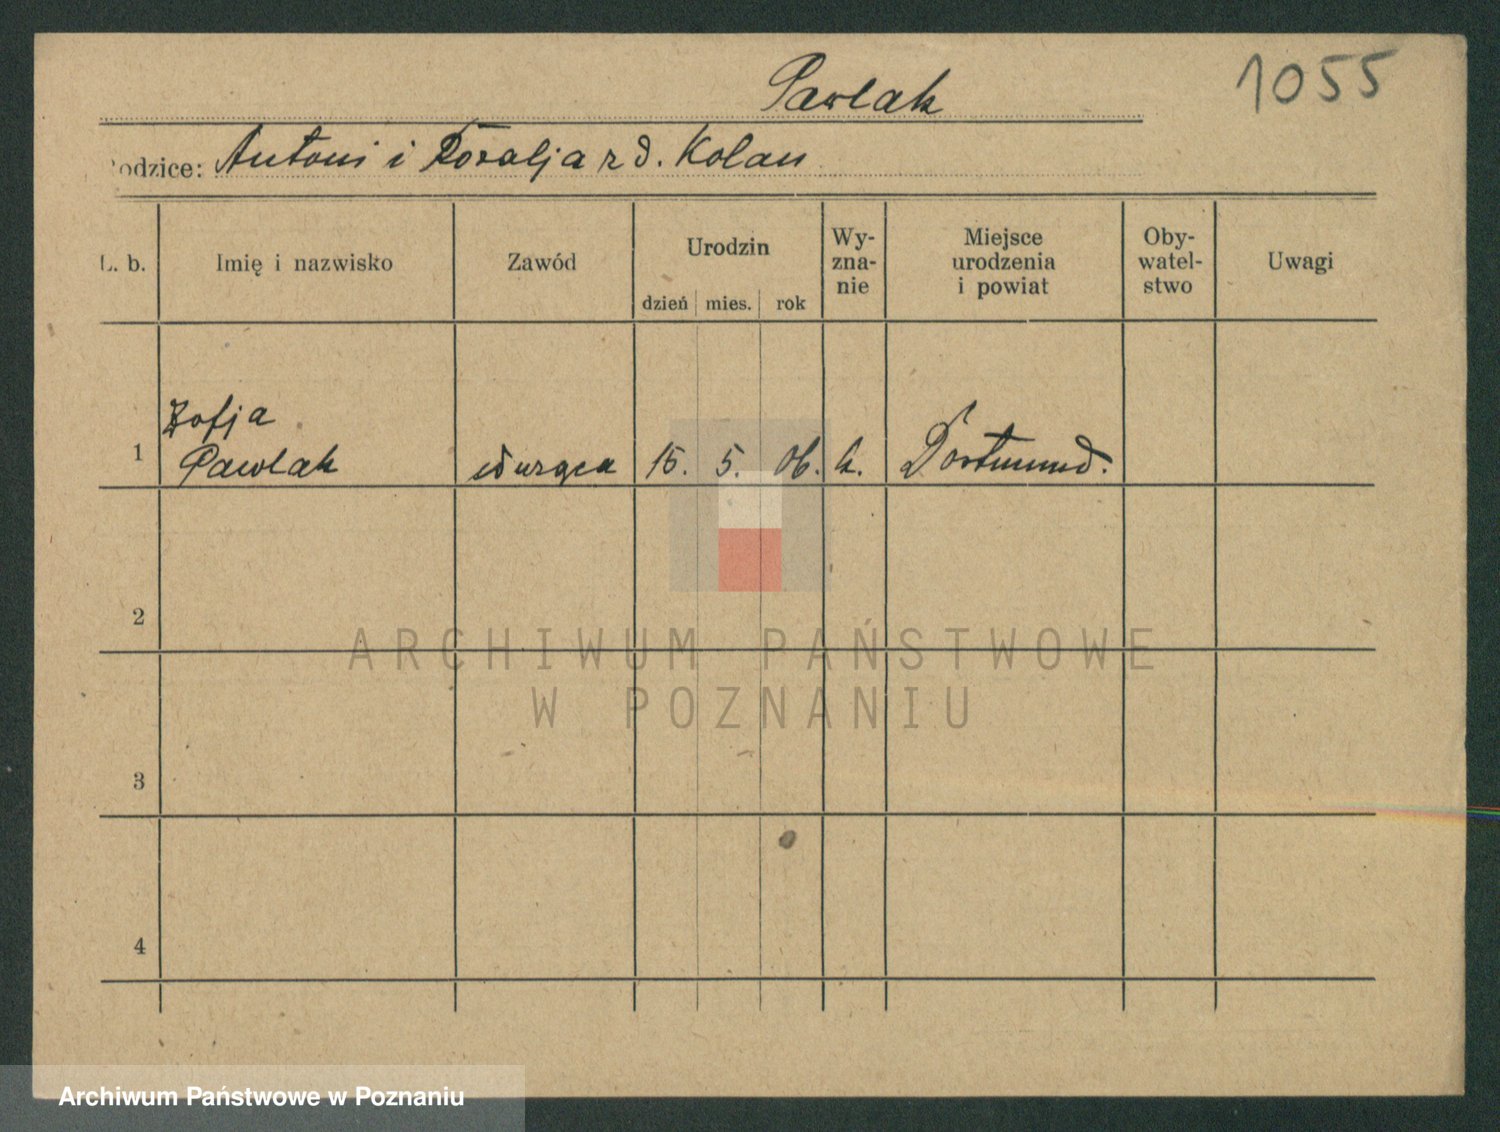 Pawlak
1055
Rodzice: Antoni i Rozalja z d. Kolan
L. b.
Imię i nazwisko
Zawód
Urodzin
dzień mies. rok
Wy-
zna-
nie
Miejsce
urodzenia
i powiat
Oby-
watel-
stwo
Uwagi
Zofja
1 Pawlak 15. 5. 06. k. Dortmund.
2
3
4
ARCHIWUM PAŃSTWOWE
W POZNANIU
Archiwum Państwowe w Poznaniu